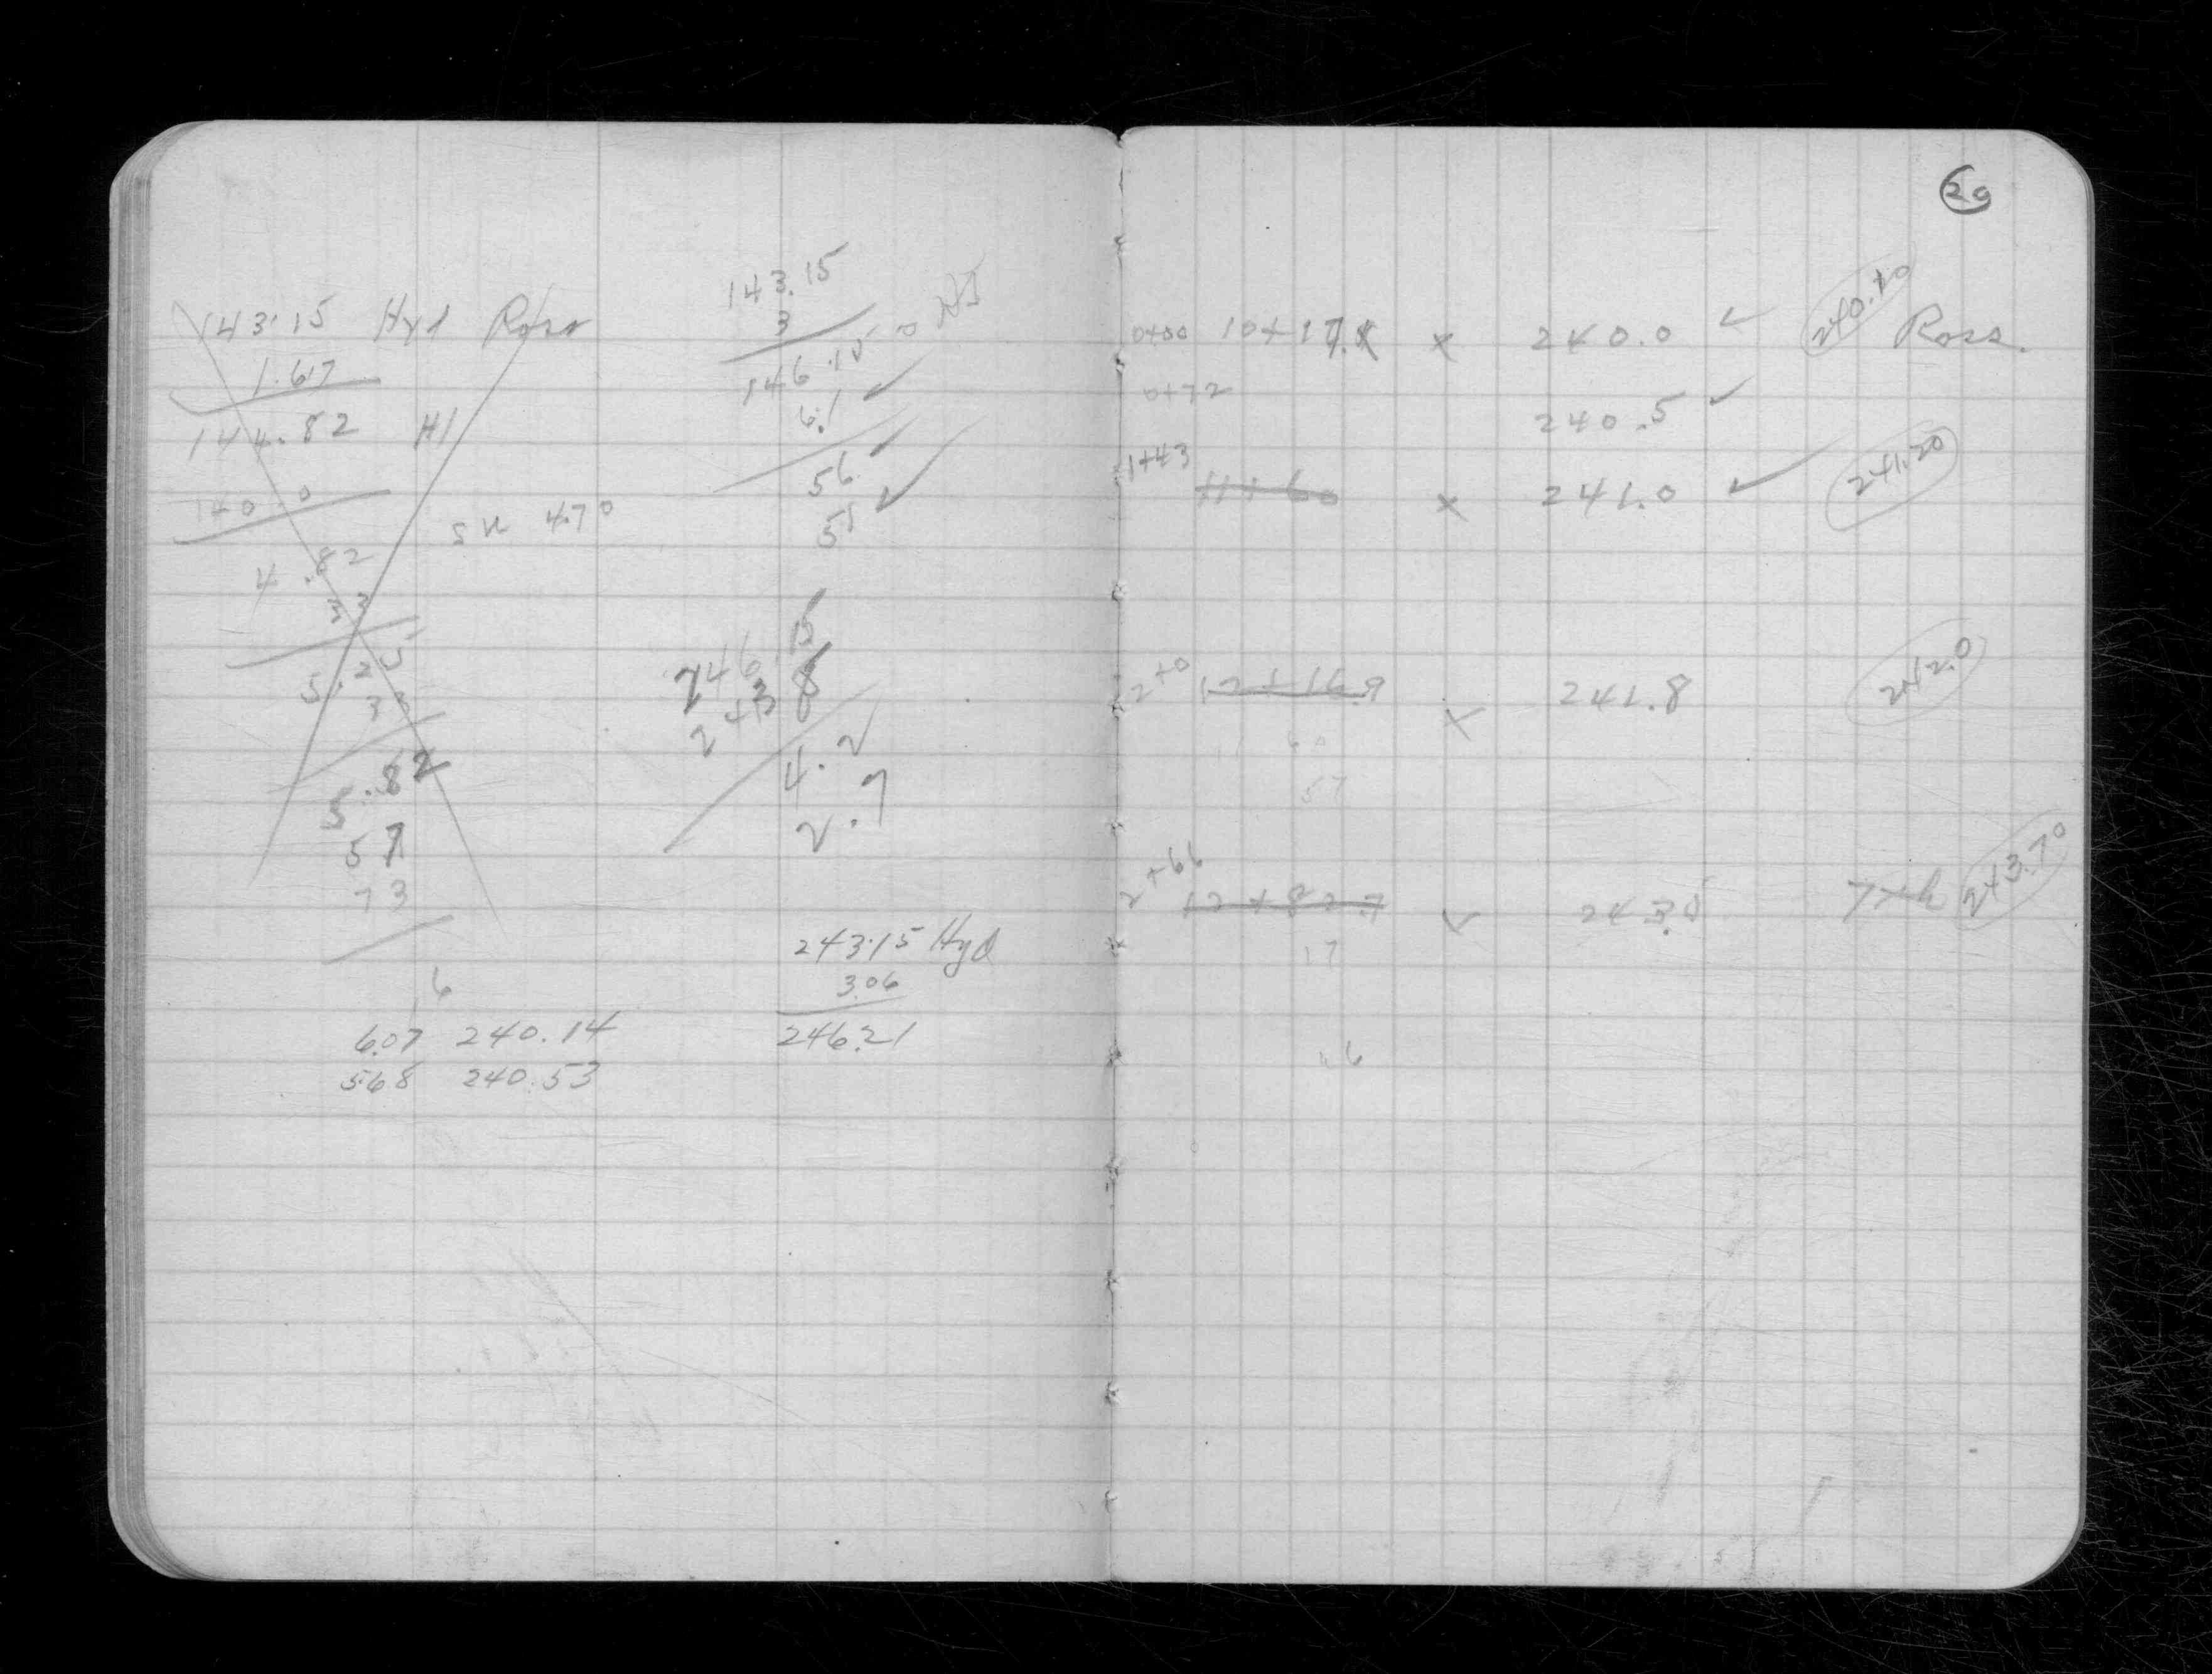 143.15 Hyd Ross
1.67
144.82 HI
140.0
4.82
5.82
57
73
6
6.07 240.14
5.68 240.53
143.15
3
146.15
6.1
56
55
246.15
243 8
4.2
2.7
243.15 Hyd
3.06
246.21
20
0+00 10+17 x 240.0 240.10 Ross.
0+72 240.5
1+43 11+60 x 241.0 241.20
2+0 12+16.9 x 241.8 242.0
60
57
2+66 12+82.7 243.5 7th 243.70
17